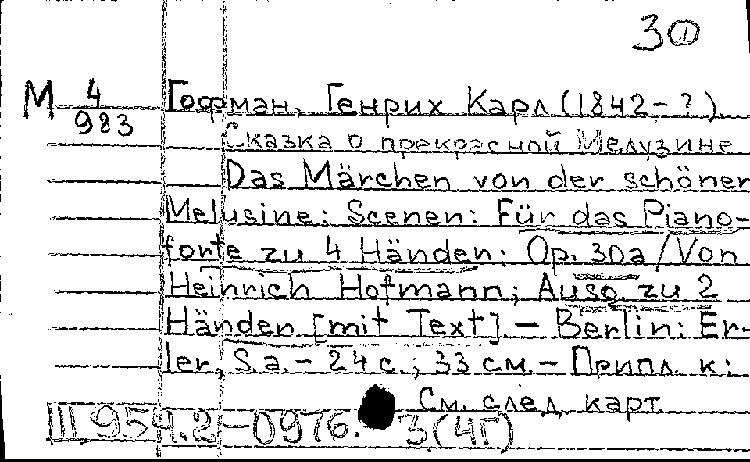 3①
М 4/983 Гофман, Генрих Карл (1842 - ?).
Сказка о прекрасной Мелузине
Das Märchen von der schönen
Melusine: Scenen: Für das Piano-
forte zu 4 Händen: Op. 30a / Von
Heinrich Hofmann; Ausg. zu 2
Händen [mit Text]. - Berlin: Er-
ler, S.a. - 24 с.; 33 см. - Припл. к:
См. след. карт.
III 959.2-0976. 3(4Г)